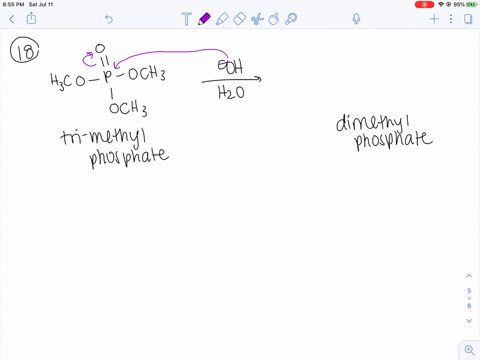 8:55 PM Sat Jul 11
95%
18
O
H3CO-P-OCH3
OCH3
⊖OH
H2O
tri-methyl
phosphate
dimethyl
phosphate
5
/
6